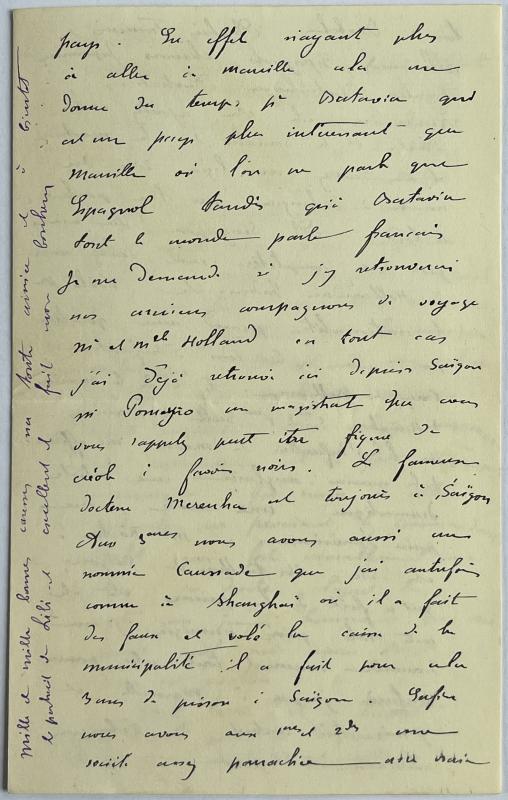 pays. En effet n'ayant plus
à aller à Manille cela me
donne du temps pr Batavia qui
est un pays plus intéressant que
Manille où l'on ne parle que
Espagnol tandis qu'à Batavia
tout le monde parle français
Je me demande si j'y retrouverai
nos anciens compagnons de voyage
Mr et Mme Holland en tout cas
j'ai déjà retrouvé ici depuis Saïgon
Mr un magistrat que vous
vous rappelez peut être figure de
créole à favoris noirs. Le fameux
docteur est toujours à Saïgon
Aux 3èmes nous avons aussi un
nommé Caussade que j'ai autrefois
connu à Shanghaï où il a fait
des faux et volé la caisse de la
municipalité il a fait pour cela
3 ans de prison à Saïgon. Enfin
nous avons aux 1res et 2des une
société assez
Mille et mille bonnes caresses ma toute amie et à bientôt
le portrait de Lili est excellent et fait mon bonheur